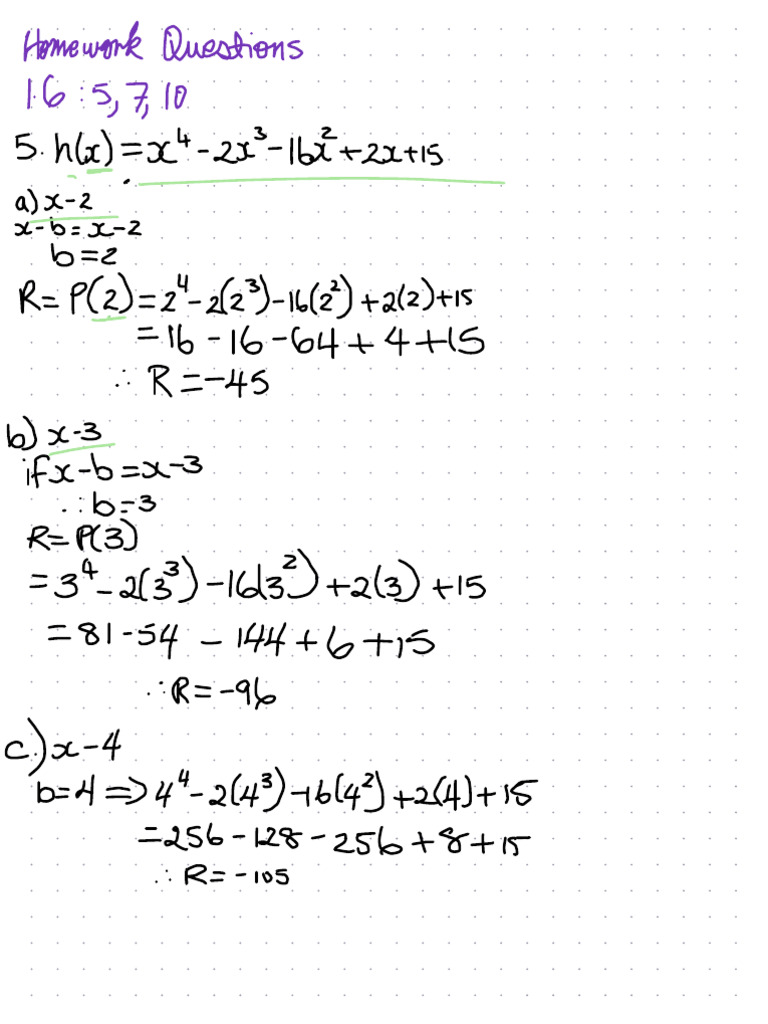 Homework Questions
1.6 : 5, 7, 10
5. h(x) = x⁴ - 2x³ - 16x² + 2x + 15
a) x - 2
x - b = x - 2
b = 2
R = P(2) = 2⁴ - 2(2³) - 16(2²) + 2(2) + 15
= 16 - 16 - 64 + 4 + 15
∴ R = -45
b) x - 3
if x - b = x - 3
∴ b = 3
R = P(3)
= 3⁴ - 2(3³) - 16(3²) + 2(3) + 15
= 81 - 54 - 144 + 6 + 15
∴ R = -96
c.) x - 4
b = 4 ⇒ 4⁴ - 2(4³) - 16(4²) + 2(4) + 15
= 256 - 128 - 256 + 8 + 15
∴ R = -105